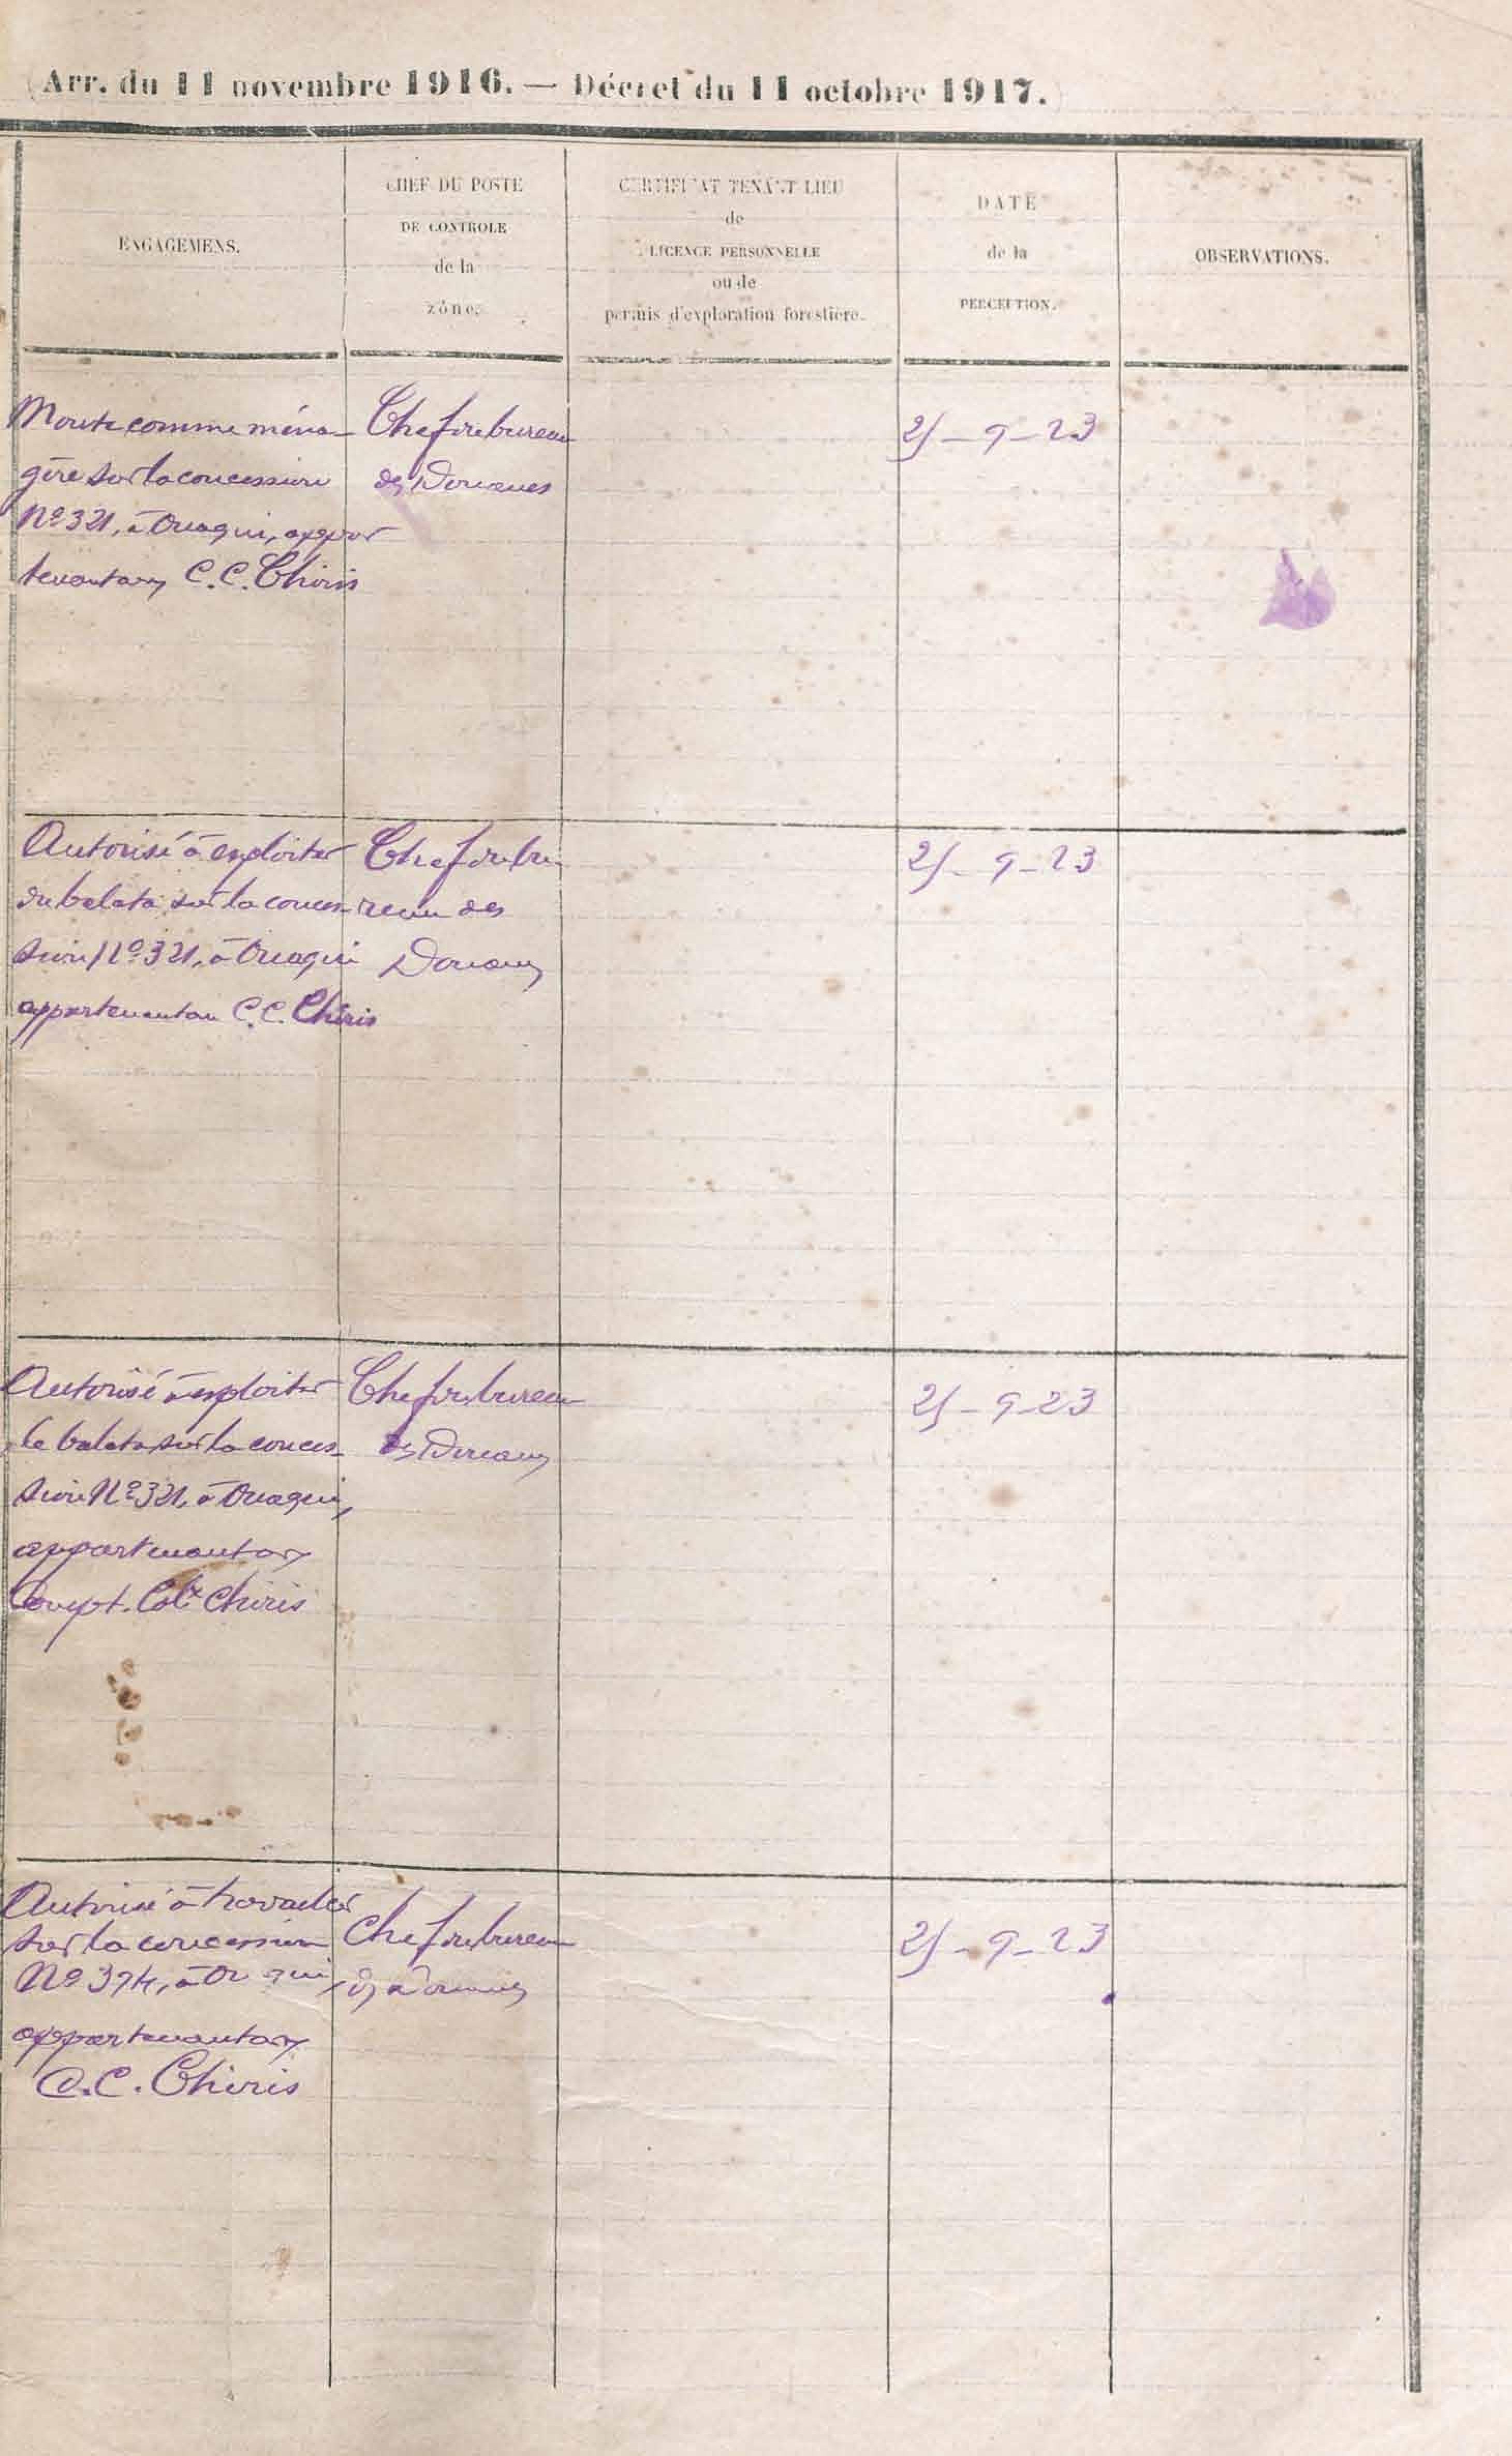 (Arr. du 11 novembre 1916. — Décret du 11 octobre 1917.)
ENGAGEMENS.
CHEF DU POSTE
DE CONTROLE
de la
zône.
CERTIFICAT TENANT LIEU
de
LICENCE PERSONNELLE
ou de
permis d'exploration forestière.
DATE
de la
PERCEPTION.
OBSERVATIONS.
Monte comme ména-
gère sur la concession
Nº 321, à Ouaqui, appar
tenant aux C.C. Chiris
Chef du bureau
des Douanes
25-9-23
Autorisé à exploiter
du balata sur la conces-
sion Nº 321, à Ouaqui
appartenant au C.C. Chiris
Chef du bu-
reau des
Douanes
25-9-23
Autorisé à exploiter
le balata sur la conces-
sion Nº 321, à Ouaqui,
appartenant aux
Compt. Colx Chiris
Chef du bureau
des Douanes
25-9-23
Autorisé à travailler
sur la concession
Nº 374, à
appartenant aux
C.C. Chiris
Chef du bureau
des Douanes
25-9-23